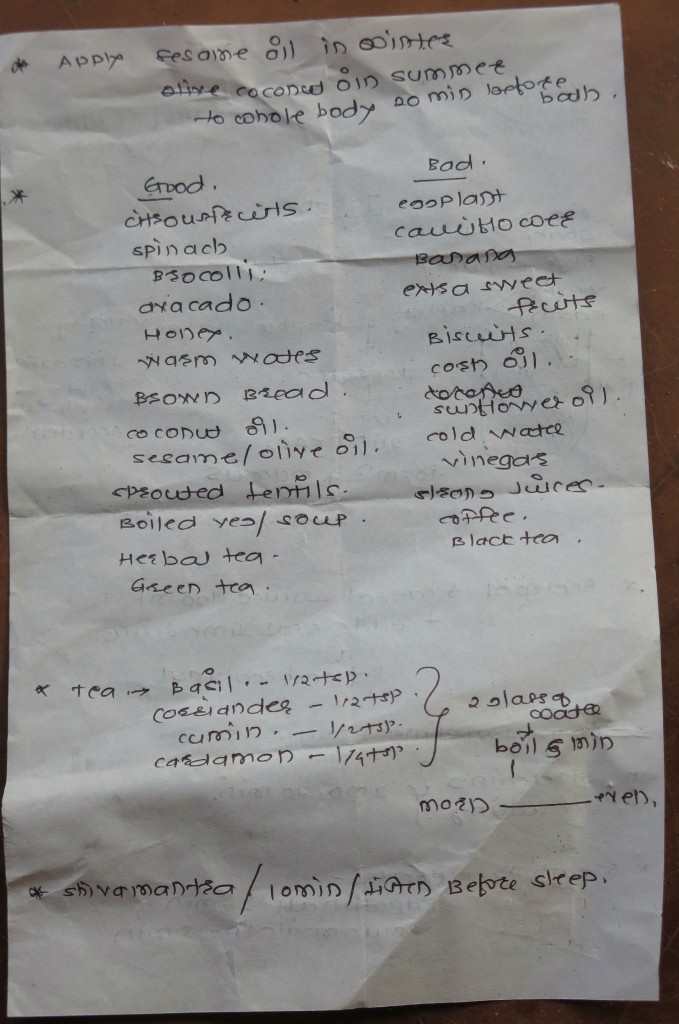 * Apply sesame oil in winter
olive coconut oil in summer
to whole body 20 min before bath.
* Good.
citrous fruits.
spinach
Brocolli.
avacado.
Honey.
warm water
Brown Bread.
coconut oil.
sesame/olive oil.
sprouted lentils.
Boiled veg/soup.
Herbal tea.
Green tea.
Bad.
eggplant
cauliflower
Banana
extra sweet
fruits
Biscuits.
corn oil.
sunflower oil.
cold water
vinegar
strong juices.
coffee.
Black tea.
* tea → Basil. - 1/2 tsp.
corriander - 1/2 tsp.
cumin. - 1/2 tsp.
cardamon - 1/4 tsp.
2 glass of
water
boil 5 min
morn — even.
* shivamantra / 10min / listen Before sleep.